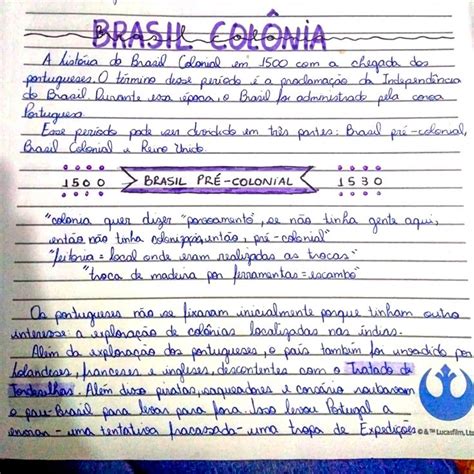 BRASIL COLÔNIA
A história do Brasil Colonial em 1500 com a chegada dos
portugueses. O término desse período é a proclamação da Independência
do Brasil. Durante essa época, o Brasil foi administrado pela coroa
Portuguesa
Esse período pode ser dividido em três partes: Brasil pré-colonial,
Brasil Colonial e Reino Unido.
1500 BRASIL PRÉ-COLONIAL 1530
"colonia quer dizer "povoamento", se não tinha gente aqui,
então não tinha colonização, então, pré-colonial"
"feitoria = local onde eram realizadas as trocas"
"troca de madeira por ferramentas = escambo"
Os portugueses não se fixaram inicialmente porque tinham outro
interesse: a exploração de colônias localizadas nas índias.
Além da exploração dos portugueses, o país também foi invadido por
holandeses, franceses e ingleses, descontentes com o Tratado de
Tordesilhas. Além disso piratas, saqueadores e corsário roubavam
o pau-Brasil para levar para fora. Isso levou Portugal a
enviar - uma tentativa fracassada - uma tropa de Expedições
©&™ Lucasfilm Lt